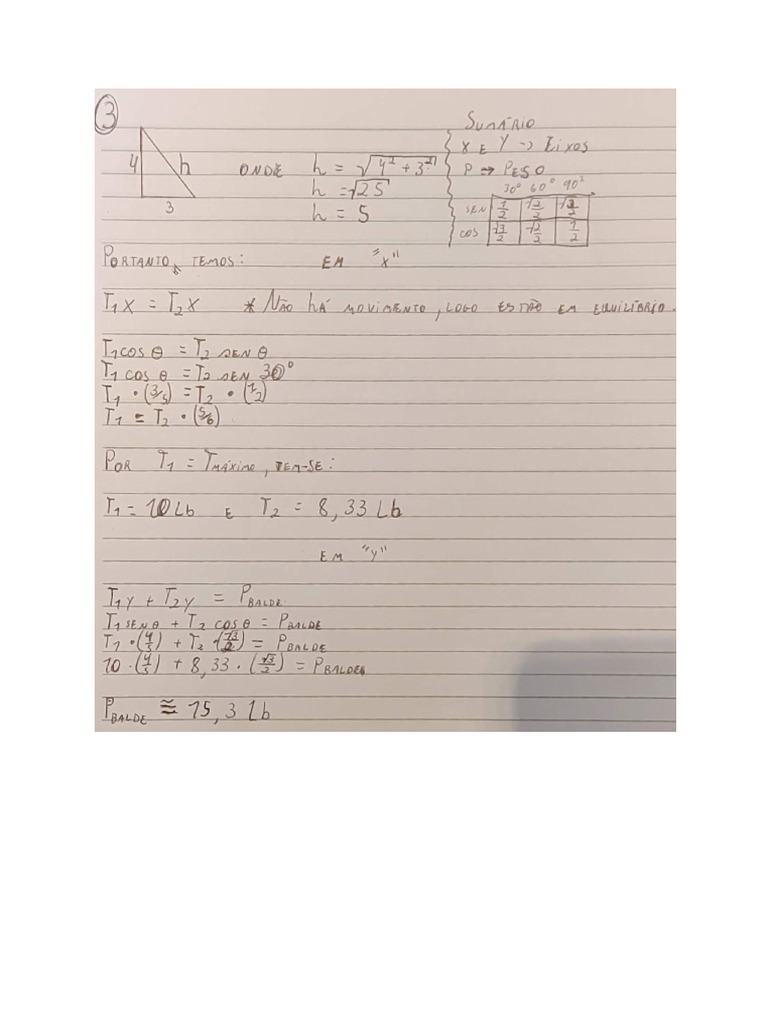 3
4 h 3
ONDE h = √4² + 3²
h = √25
h = 5
SUMÁRIO
X E Y → EIXOS
P → PESO
30° 60° 90°
SEN 1/2 √2/2 √3/2
COS √3/2 √2/2 1/2
PORTANTO, TEMOS: EM "X"
T₁X = T₂X * NÃO HÁ MOVIMENTO, LOGO ESTÃO EM EQUILÍBRIO.
T₁COS θ = T₂ SEN θ
T₁ COS θ = T₂ SEN 30°
T₁ • (3/5) = T₂ • (1/2)
T₁ = T₂ • (5/6)
POR T₁ = TMÁXIMO, TEM-SE:
T₁ = 10 Lb E T₂ = 8,33 Lb
EM "Y"
T₁Y + T₂Y = PBALDE
T₁ SEN θ + T₂ COS θ = PBALDE
T₁ • (4/5) + T₂ • (√3/2) = PBALDE
10 • (4/5) + 8,33 • (√3/2) = PBALDE
PBALDE ≅ 15,3 Lb